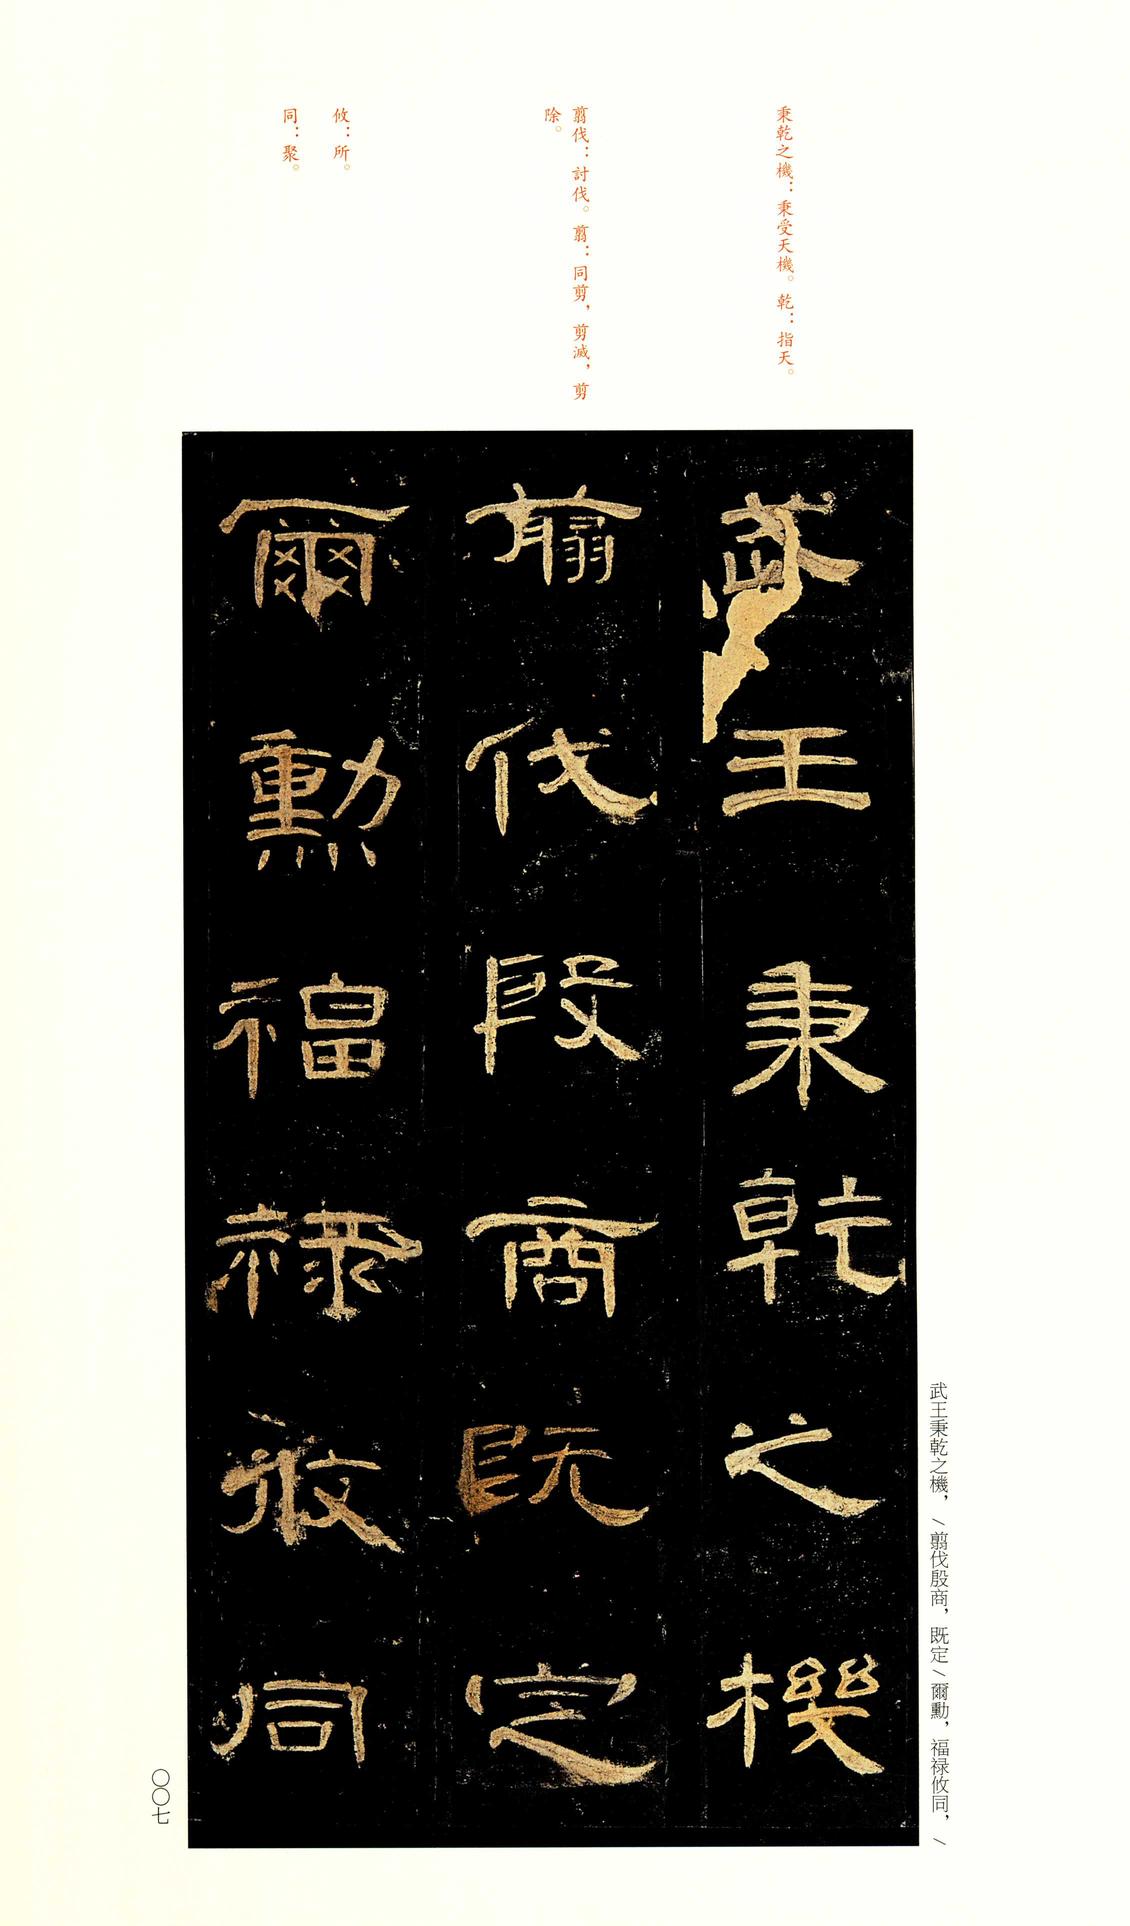 秉乾之機：秉受天機。乾：指天。
翦伐：討伐。翦：同剪，剪滅，剪
除。
攸：所。
同：聚。
武王秉乾之機
翦伐殷商既定
爾勳福祿攸同
武王秉乾之機，／翦伐殷商，既定／爾勳，福禄攸同，／
〇〇七